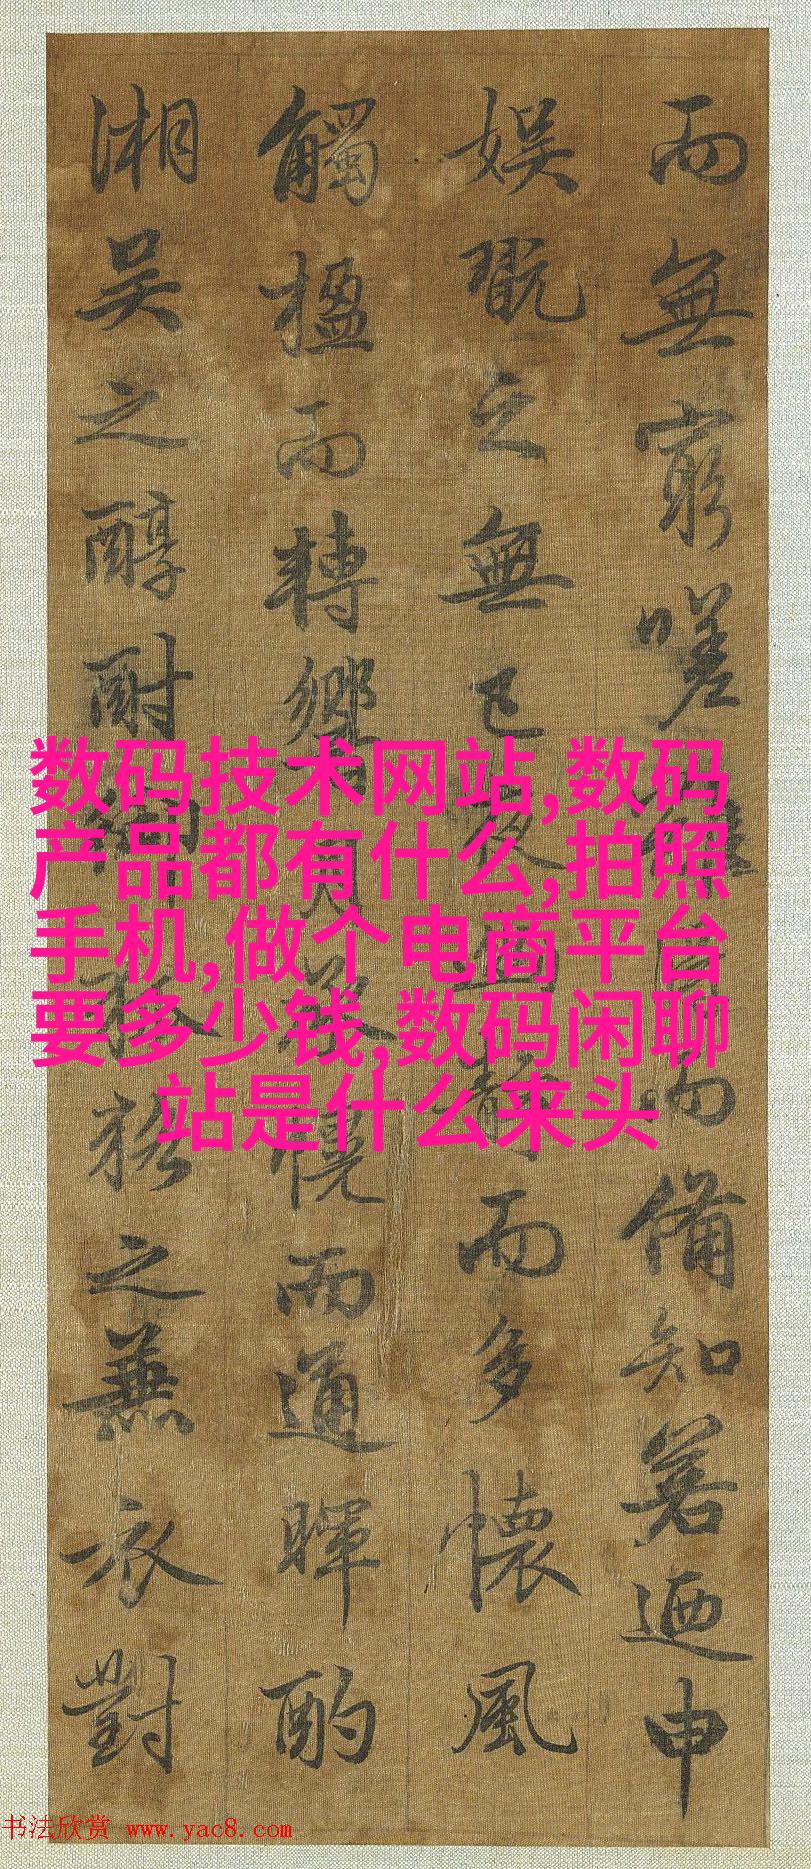 而無窮嗟難得而備知若迺申
娛翫之無已夜幽靜而多懷風
觸楹而轉響月承幌而通暉酌
湘吳之醇酎御狐狢之兼衣對
数码技术网站,数码
产品都有什么,拍照
手机,做个电商平台
要多少钱,数码闲聊
站是什么来头
书法欣赏 www.yac8.com